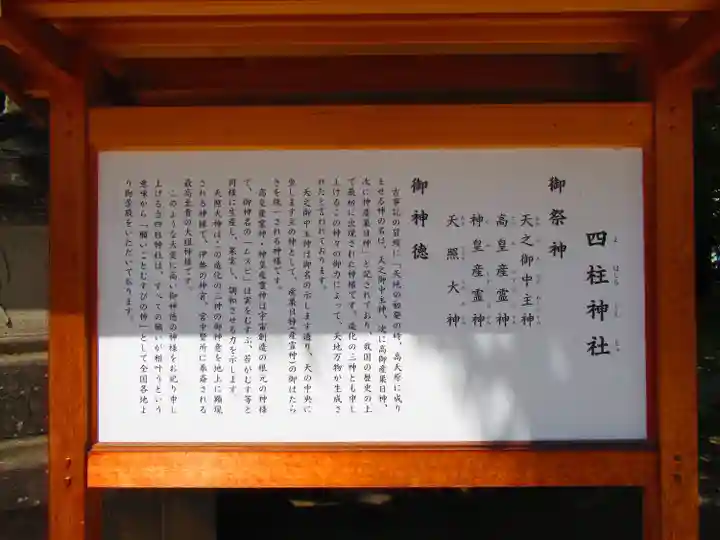 四柱神社
よはしらじんじゃ
御祭神
天之御中主神
高皇産霊神
神皇産霊神
天照大神
御神徳
古事記の冒頭に「天地の初発の時、高天原に成り
ませる神の名は、天之御中主神、次に高御産巣日神、
次に神産巣日神」と記されており、我国の歴史の上
で最初に出現された神様です。造化の三神とも申し
上げるこの神々の御力によって、天地万物が生成さ
れたと言われております。
天之御中主神は御名の示します通り、天の中央に
坐します主の神として、産巣日神(産霊神)の御はたら
きを統一される神様です。
高皇産霊神・神皇産霊神は宇宙創造の根元の神様
で、御神名の「ムスビ」は実をむすぶ、苔がむす等と
同様に生産し、果実し、調和させる力を示します。
天照大神は、この造化の三神の御神意を地上に顕現
される神様で、伊勢の神宮、宮中賢所に奉斎される
最高至貴の大祖神様です。
このような大変に高い御神徳の神様をお祀り申し
上げる当四柱神社は、すべての願いが相叶うという
意味から「願いごとむすびの神」として全国各地よ
り御崇敬をいただいて居ります。